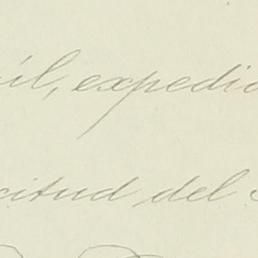 il, expedid
citud del